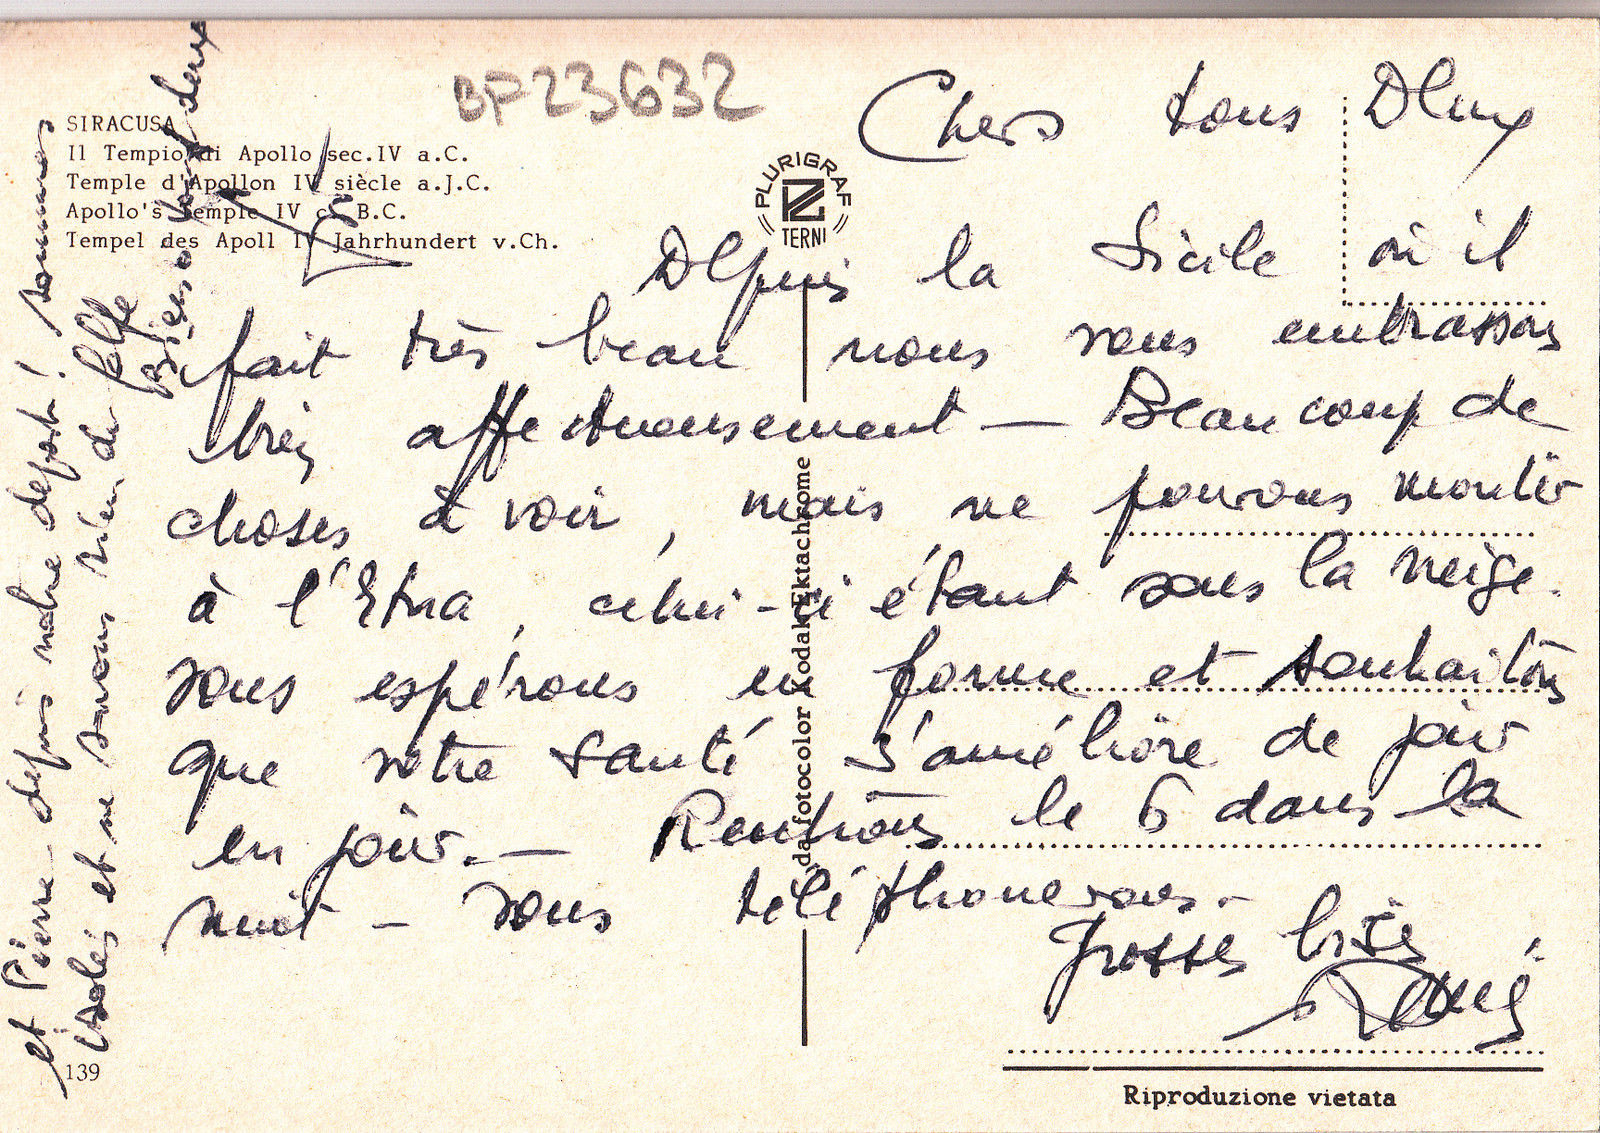 BP23632
SIRACUSA
Il Tempio di Apollo sec.IV a.C.
Temple d'Apollon IV siècle a.J.C.
Apollo's Temple IV c. B.C.
Tempel des Apoll IV Jahrhundert v.Ch.
PLURIGRAF
TERNI
Chers tous Deux
Depuis la Sicile où il
fait très beau nous vous embrassons
très affectueusement — Beaucoup de
choses à voir, mais ne pouvons monter
à l'Etna, celui-ci étant sous la neige.
Vous espérons en forme et souhaitons
que votre santé s'améliore de jour
en jour. — Rentrons le 6 dans la
nuit — vous téléphonerons. -
Grosses bises
et Pierre - depuis notre départ! sommes
isolés et ne savons rien de
Bien à tous deux
da fotocolor Kodak Ektachrome
139
Riproduzione vietata